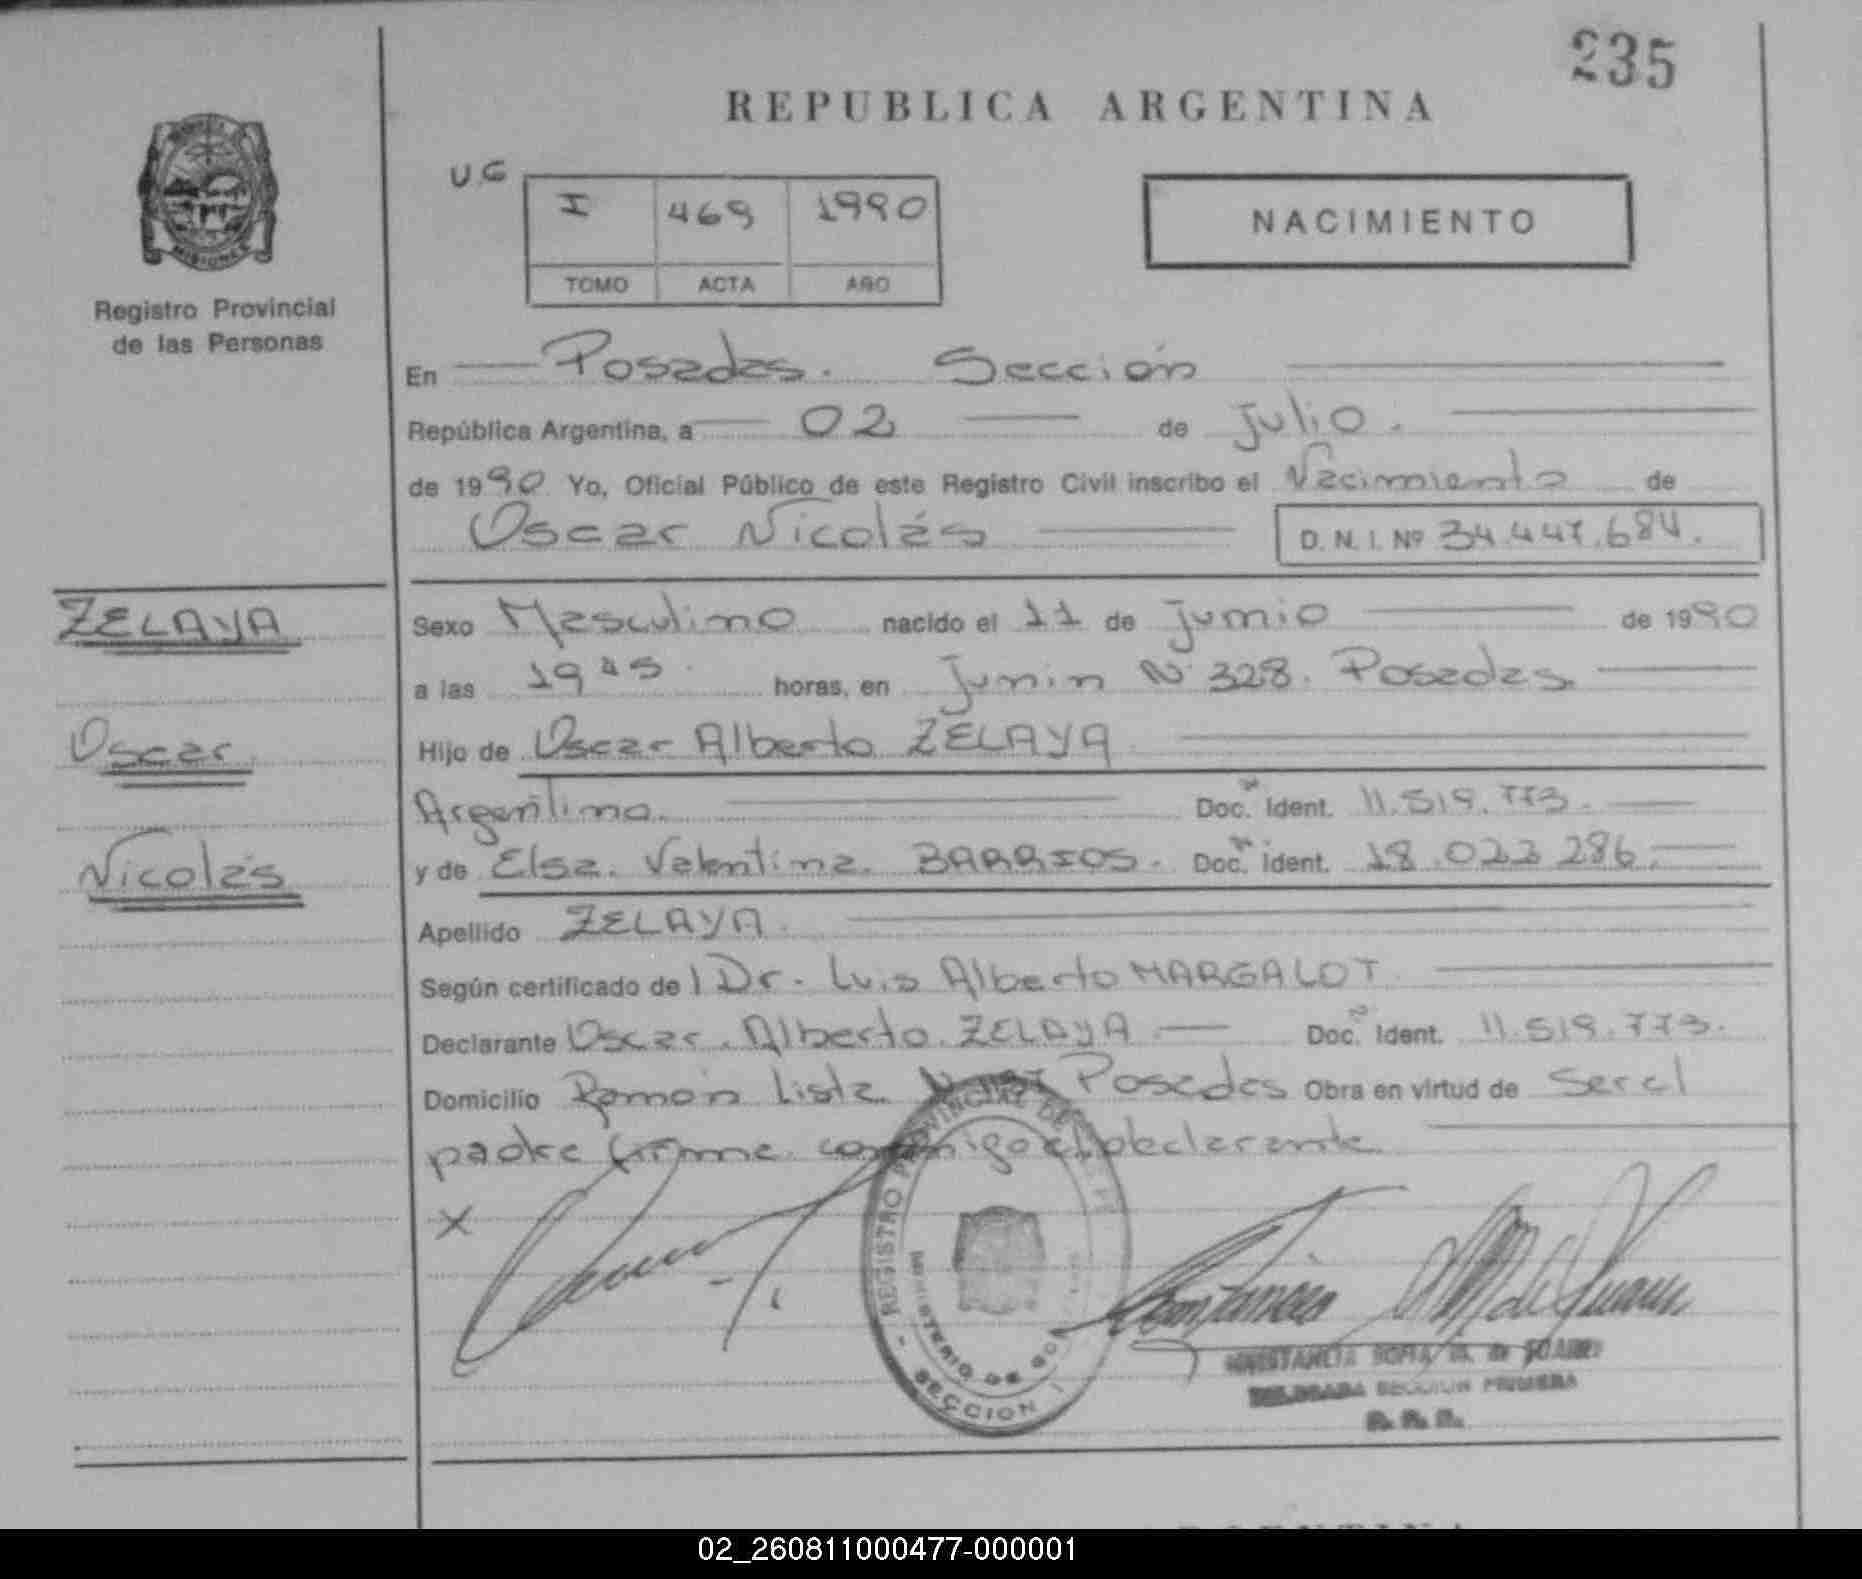 235
REPUBLICA ARGENTINA
U.G
I 469 1990
TOMO ACTA AÑO
NACIMIENTO
MISIONES
Registro Provincial
de las Personas
En Posadas. Sección
República Argentina, a 02 de Julio.
de 1990 Yo, Oficial Público de este Registro Civil inscribo el Nacimiento de
Oscar Nicolás D. N. I. Nº 34.447.684.
ZELAYA
Oscar
Nicolás
Sexo Masculino nacido el 11 de Junio de 1990
a las 19 45 horas, en Junin Nº 328. Posadas.
Hijo de Oscar Alberto ZELAYA
Argentino. Doc. Ident. 11.519.773.
y de Elsa. Valentina. BARRIOS. Doc. Ident. 18.023 286.
Apellido ZELAYA.
Según certificado del Dr. Luis Alberto MARGALOT
Declarante Oscar. Alberto. ZELAYA. Doc. Ident. 11.519.773.
Domicilio Ramón Lista Posadas Obra en virtud de Ser el
padre firma conmigo el declarante.
X
REGISTRO PROVINCIAL DE
MINISTERIO DE GO
SECCION
CONSTANCIA SOFIA M. de SUAREZ
DELEGADA SECCION PRIMERA
02_260811000477-000001